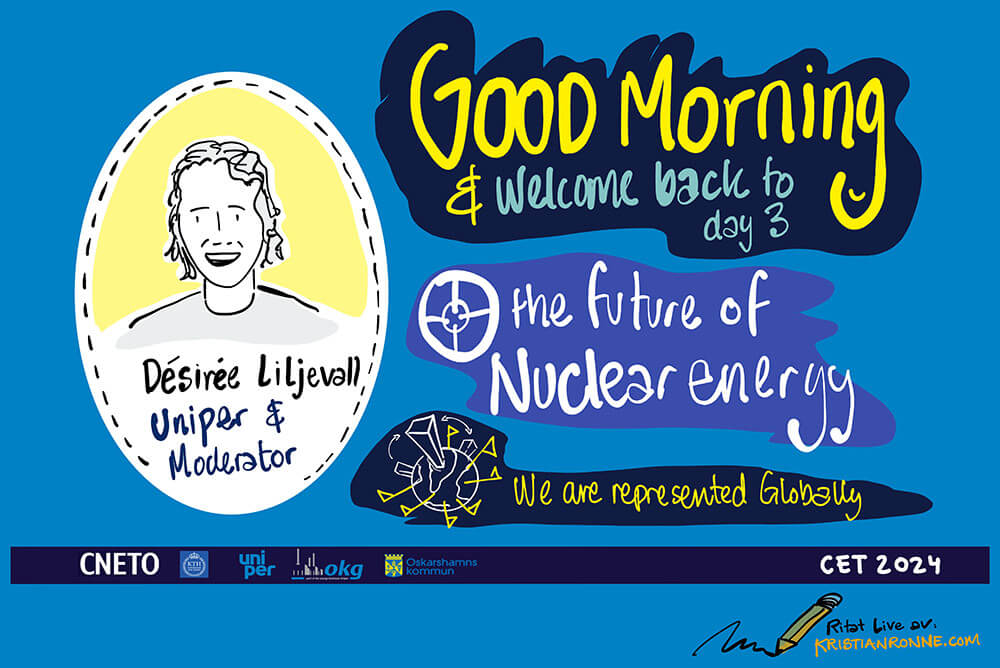 GOOD Morning
& Welcome back to
day 3
the future of
Nuclear energy
We are represented Globally
Désirée Liljevall
Uniper &
Moderator
CNETO
KTH
uni
per
okg
Oskarshamns
kommun
CET 2024
Ritat Live av.
KRISTIANRONNE.COM